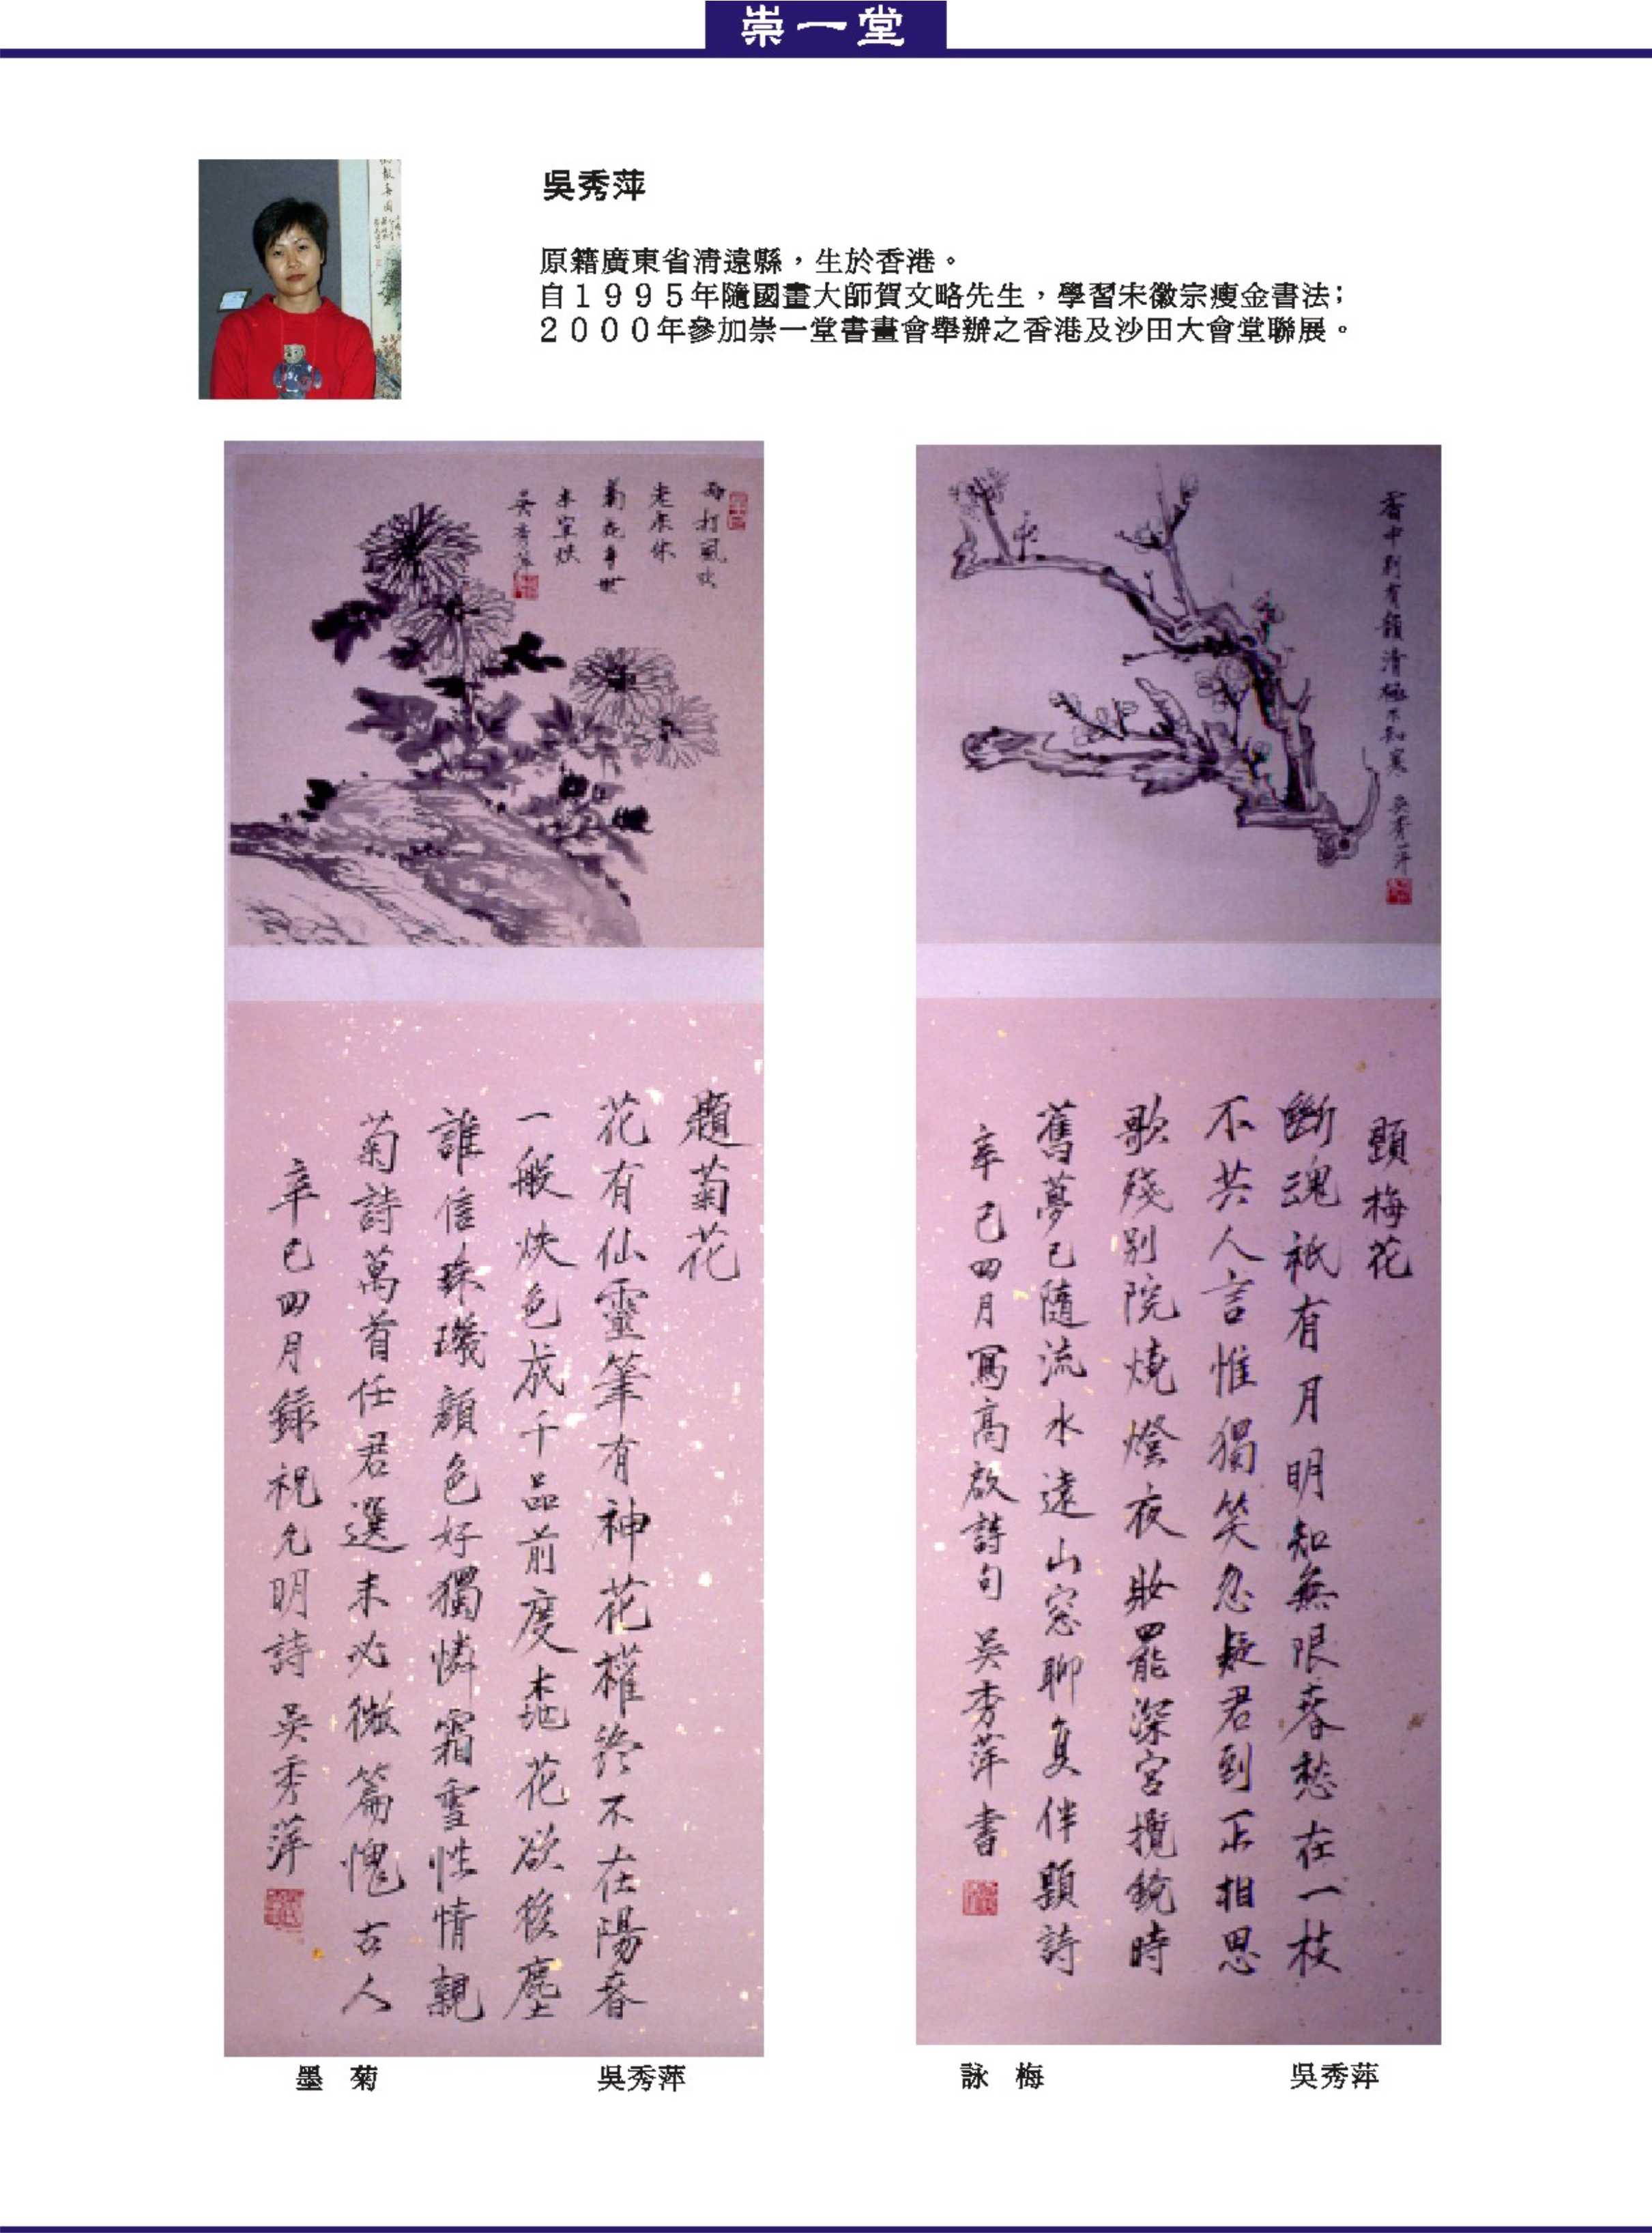 崇一堂
吳秀萍
原籍廣東省清遠縣，生於香港。
自１９９５年隨國畫大師賀文略先生，學習宋徽宗瘦金書法；
２０００年參加崇一堂書畫會舉辦之香港及沙田大會堂聯展。
雨打風吹
老未休
菊花身世
本
吳秀萍
雪中別有韻清極不知寒 吳秀萍
題菊花
花有仙靈筆有神花權終不在陽春
一般炴色成千品前度桃花欲後塵
誰信珠璣顏色好獨憐霜雪性情親
菊詩萬首任君選未必微篇愧古人
辛巳四月錄祝允明詩 吳秀萍
題梅花
斷魂祇有月明知無限春愁在一枝
不共人言惟獨笑忽疑君到正相思
歌殘別院燒燈夜妝罷深宮攬鏡時
舊夢已隨流水遠山窓聊復伴題詩
辛巳四月寫高啟詩句 吳秀萍書
墨 菊 吳秀萍
詠 梅 吳秀萍